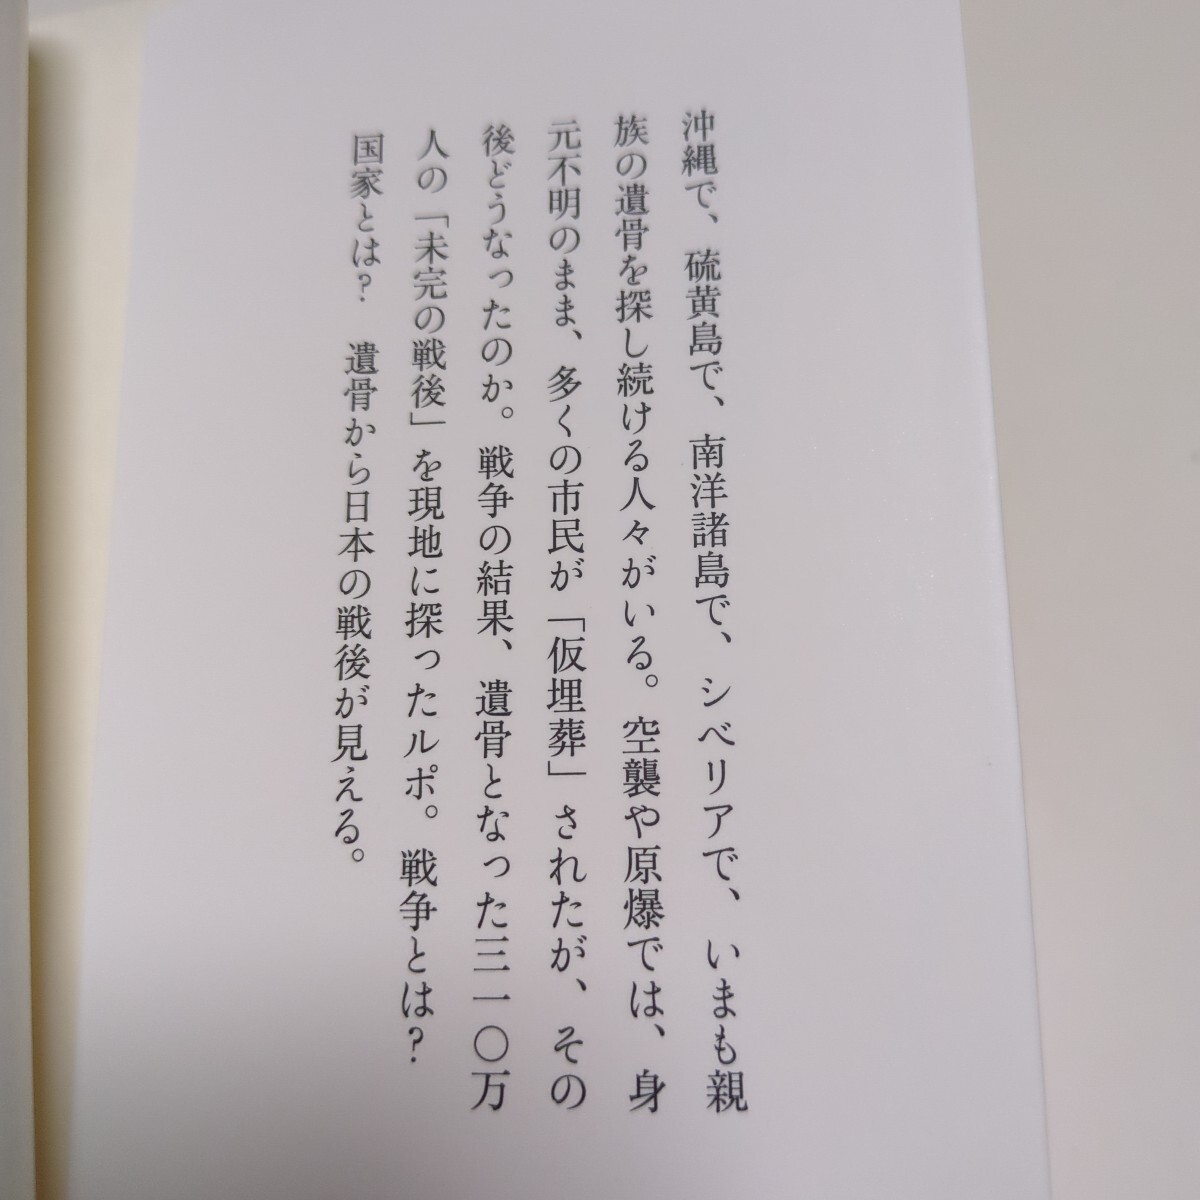 沖縄で、硫黄島で、南洋諸島で、シベリアで、いまも親
族の遺骨を探し続ける人々がいる。空襲や原爆では、身
元不明のまま、多くの市民が「仮埋葬」されたが、その
後どうなったのか。戦争の結果、遺骨となった三一〇万
人の「未完の戦後」を現地に探ったルポ。戦争とは？
国家とは？　遺骨から日本の戦後が見える。